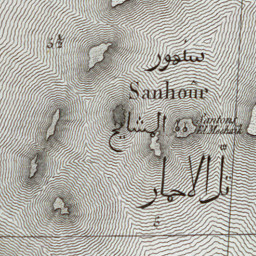 5½
سنهور
Sanhoûr
المشايخ
Santons
El Mechaik
تلّ الاحمار